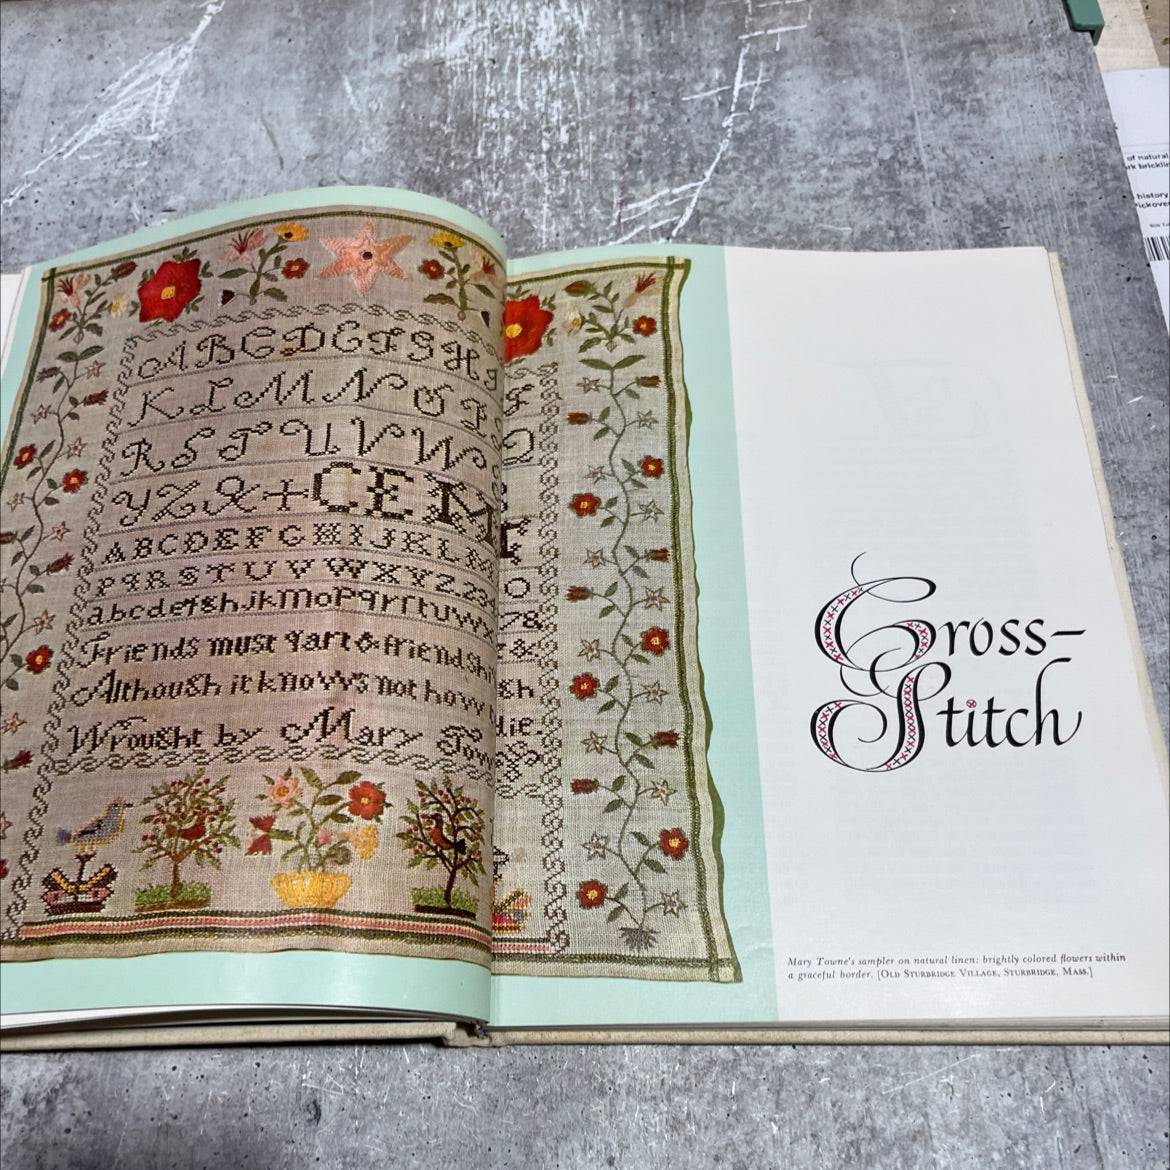 A B C D E F G H I
K L M N O P P
R S T U V W Q
Y Z & + C E M E
A B C D E F G H I J K L M
P Q R S T U V W X Y Z. 23 0
a b c d e f g h j k m o p q r ſ t u v x 78.
Friends must part & friendsh &.
Although it knows not how sh
Wrought by Mary Tow die.
Cross-
Stitch
Mary Towne's sampler on natural linen: brightly colored flowers within
a graceful border. [OLD STURBRIDGE VILLAGE, STURBRIDGE, MASS.]
of natural
rk brickli
history
Pickover